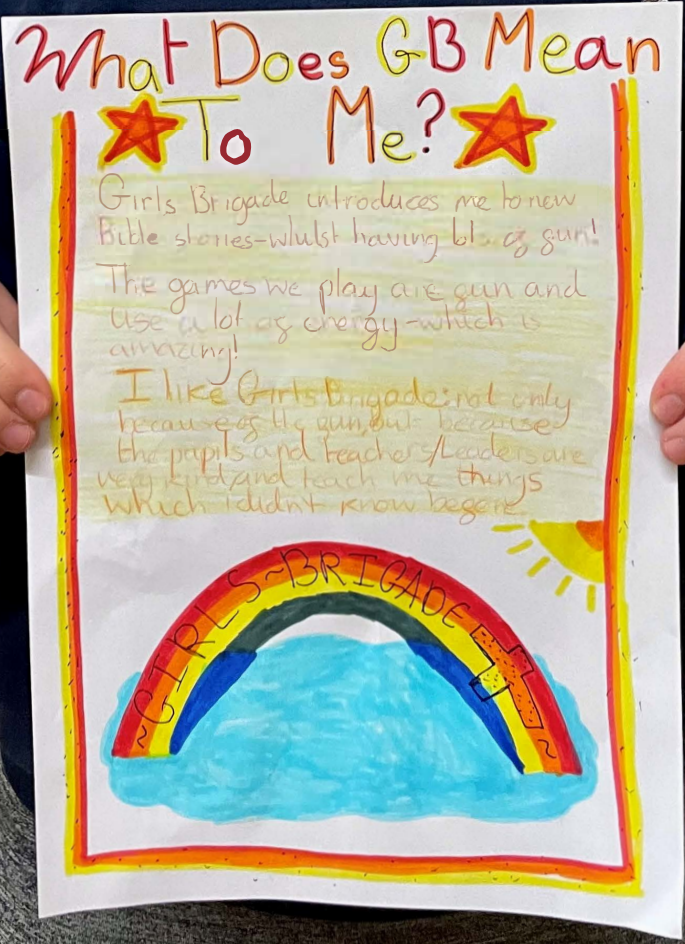 What Does GB Mean
To Me?
Girls Brigade introduces me to new
Bible stories-whilst having of fun!
The games we play are fun and
use a lot of energy-which is
amazing!
I like Girls Brigade; not only
because of the fun, but because
the pupils and teachers/Leaders are
very kind, and teach me things
which i didn't know before
~GIRLS~BRIGADE~